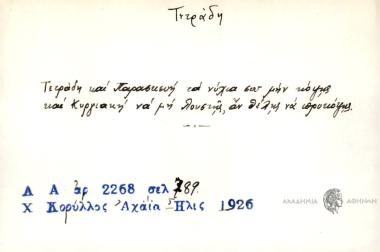 Τετράδη
Τετράδη καὶ Παρασκευὴ τὰ νύχια σου μὴν κόψῃς
καὶ Κυργιακὴ νὰ μὴ λουστῇς, ἂν θέλῃς νὰ προκόψῃς.
Λ Α ἀρ 2268 σελ 789.
Χ Κορύλλος Ἀχαΐα Ἦλις 1926
ΑΚΑΔΗΜΙΑ ΑΘΗΝΩΝ